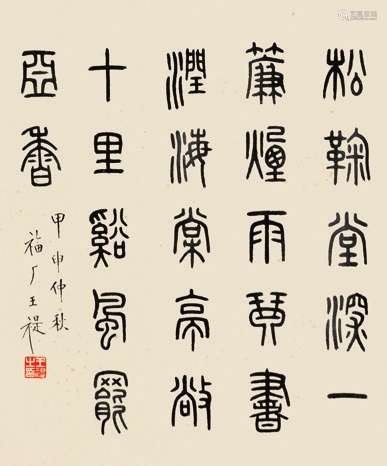 松鞠堂深一
簾煙雨琴書
潤海棠亭敞
十里谿風罷
亞香
甲申仲秋
福厂王禔